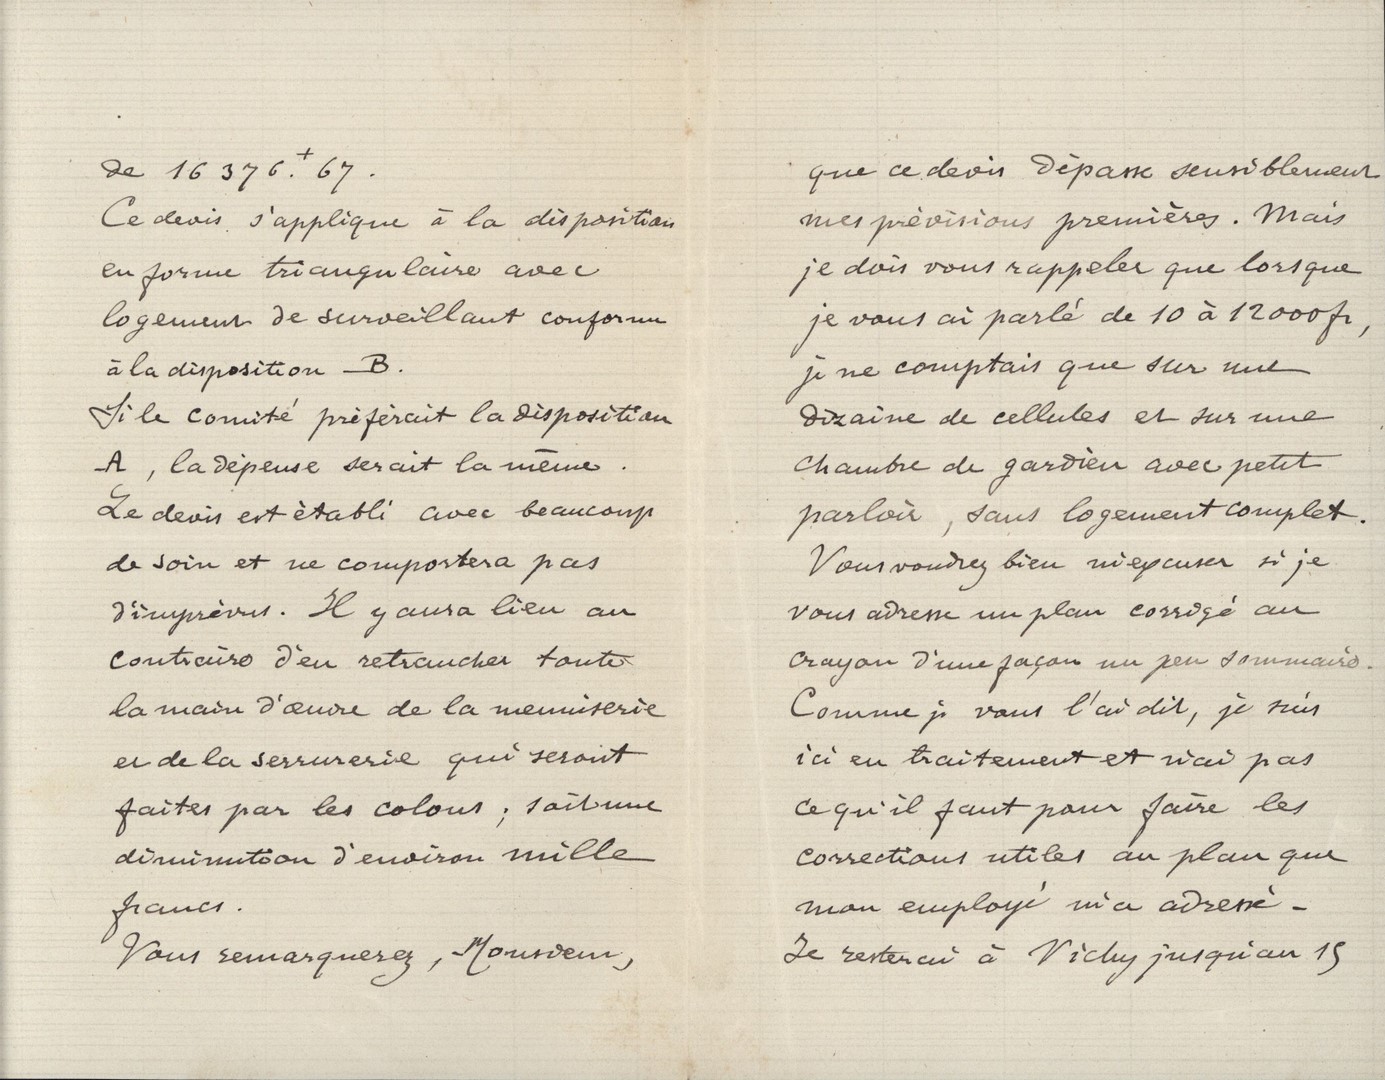 de 16 376.f 67.
Ce devis s'applique à la disposition
en forme triangulaire avec
logement de surveillant conforme
à la disposition B.
Si le comité préférait la disposition
A, la dépense serait la même.
Le devis est établi avec beaucoup
de soin et ne comportera pas
d'imprévus. Il y aura lieu au
contraire d'en retrancher toute
la main d'œuvre de la menuiserie
et de la serrurerie qui seront
faites par les colons ; soit une
diminution d'environ mille
francs.
Vous remarquerez, Monsieur,
que ce devis dépasse sensiblement
mes prévisions premières. Mais
je dois vous rappeler que lorsque
je vous ai parlé de 10 à 12000 fr,
je ne comptais que sur une
dizaine de cellules et sur une
chambre de gardien avec petit
parloir, sans logement complet.
Vous voudrez bien m'excuser si je
vous adresse un plan corrigé au
crayon d'une façon un peu sommaire.
Comme je vous l'ai dit, je suis
ici en traitement et n'ai pas
ce qu'il faut pour faire les
corrections utiles au plan que
mon employé m'a adressé -
Je resterai à Vichy jusqu'au 15